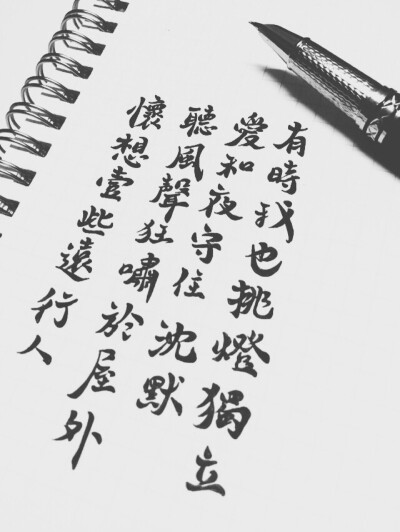 有時我也挑燈獨立
愛和夜守住沈默
聽風聲狂嘯於屋外
懷想壹些遠行人